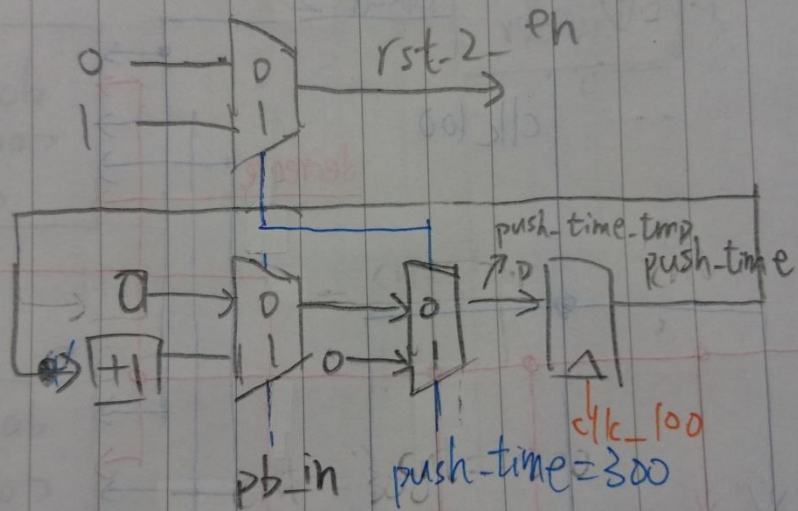 0 0 rst_2_en
1 1
push_time_tmp
push_time
0 0 0 D
+1 1 0 1
clk_100
pb_in push_time=300